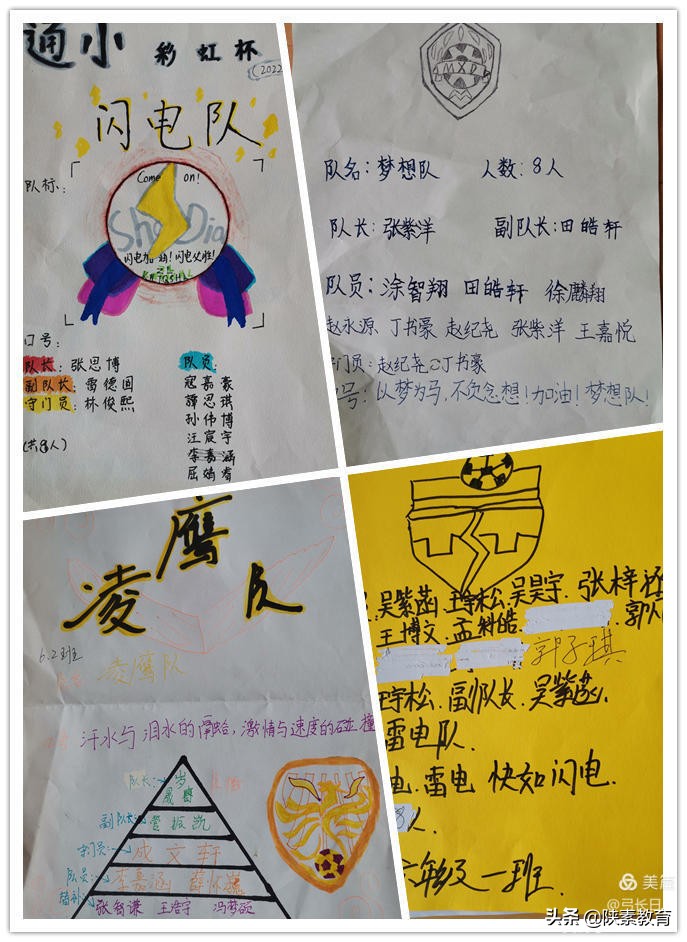 通小 彩虹杯
2022
闪电队
队标:
Come on!
ShanDian
闪电加油!闪电必胜!
口号:
队长:张思博
副队长:雷德国
守门员:林俊熙
(共8人)
队员
寇嘉豪
谭思琪
孙伟博
汪宸宇
李嘉涵
MXD
队名:梦想队 人数:8人
队长:张紫洋 副队长:田皓轩
队员:涂智翔 田皓轩 徐麟翔
赵永源 丁书豪 赵纪尧 张紫洋 王嘉悦
门员:赵纪尧 丁书豪
号:以梦为马,不负念想!加油!梦想队!
凌鹰队
6.2班
凌鹰队
汗水与泪水的融合,激情与速度的碰撞
队长:
副队长
守门员:
成文轩
队员:
李嘉涵
替补:
张智谦 王浩宇 冯梦硕
吴紫菡 王宇松 吴昊宇 张梓涵
王博文 孟科皓 郭
郭子琪
王宇松 副队长 吴紫菡
雷电队
电 雷电 快如闪电
8人
六年级一班
美篇
@弓长日
头条 @陕素教育